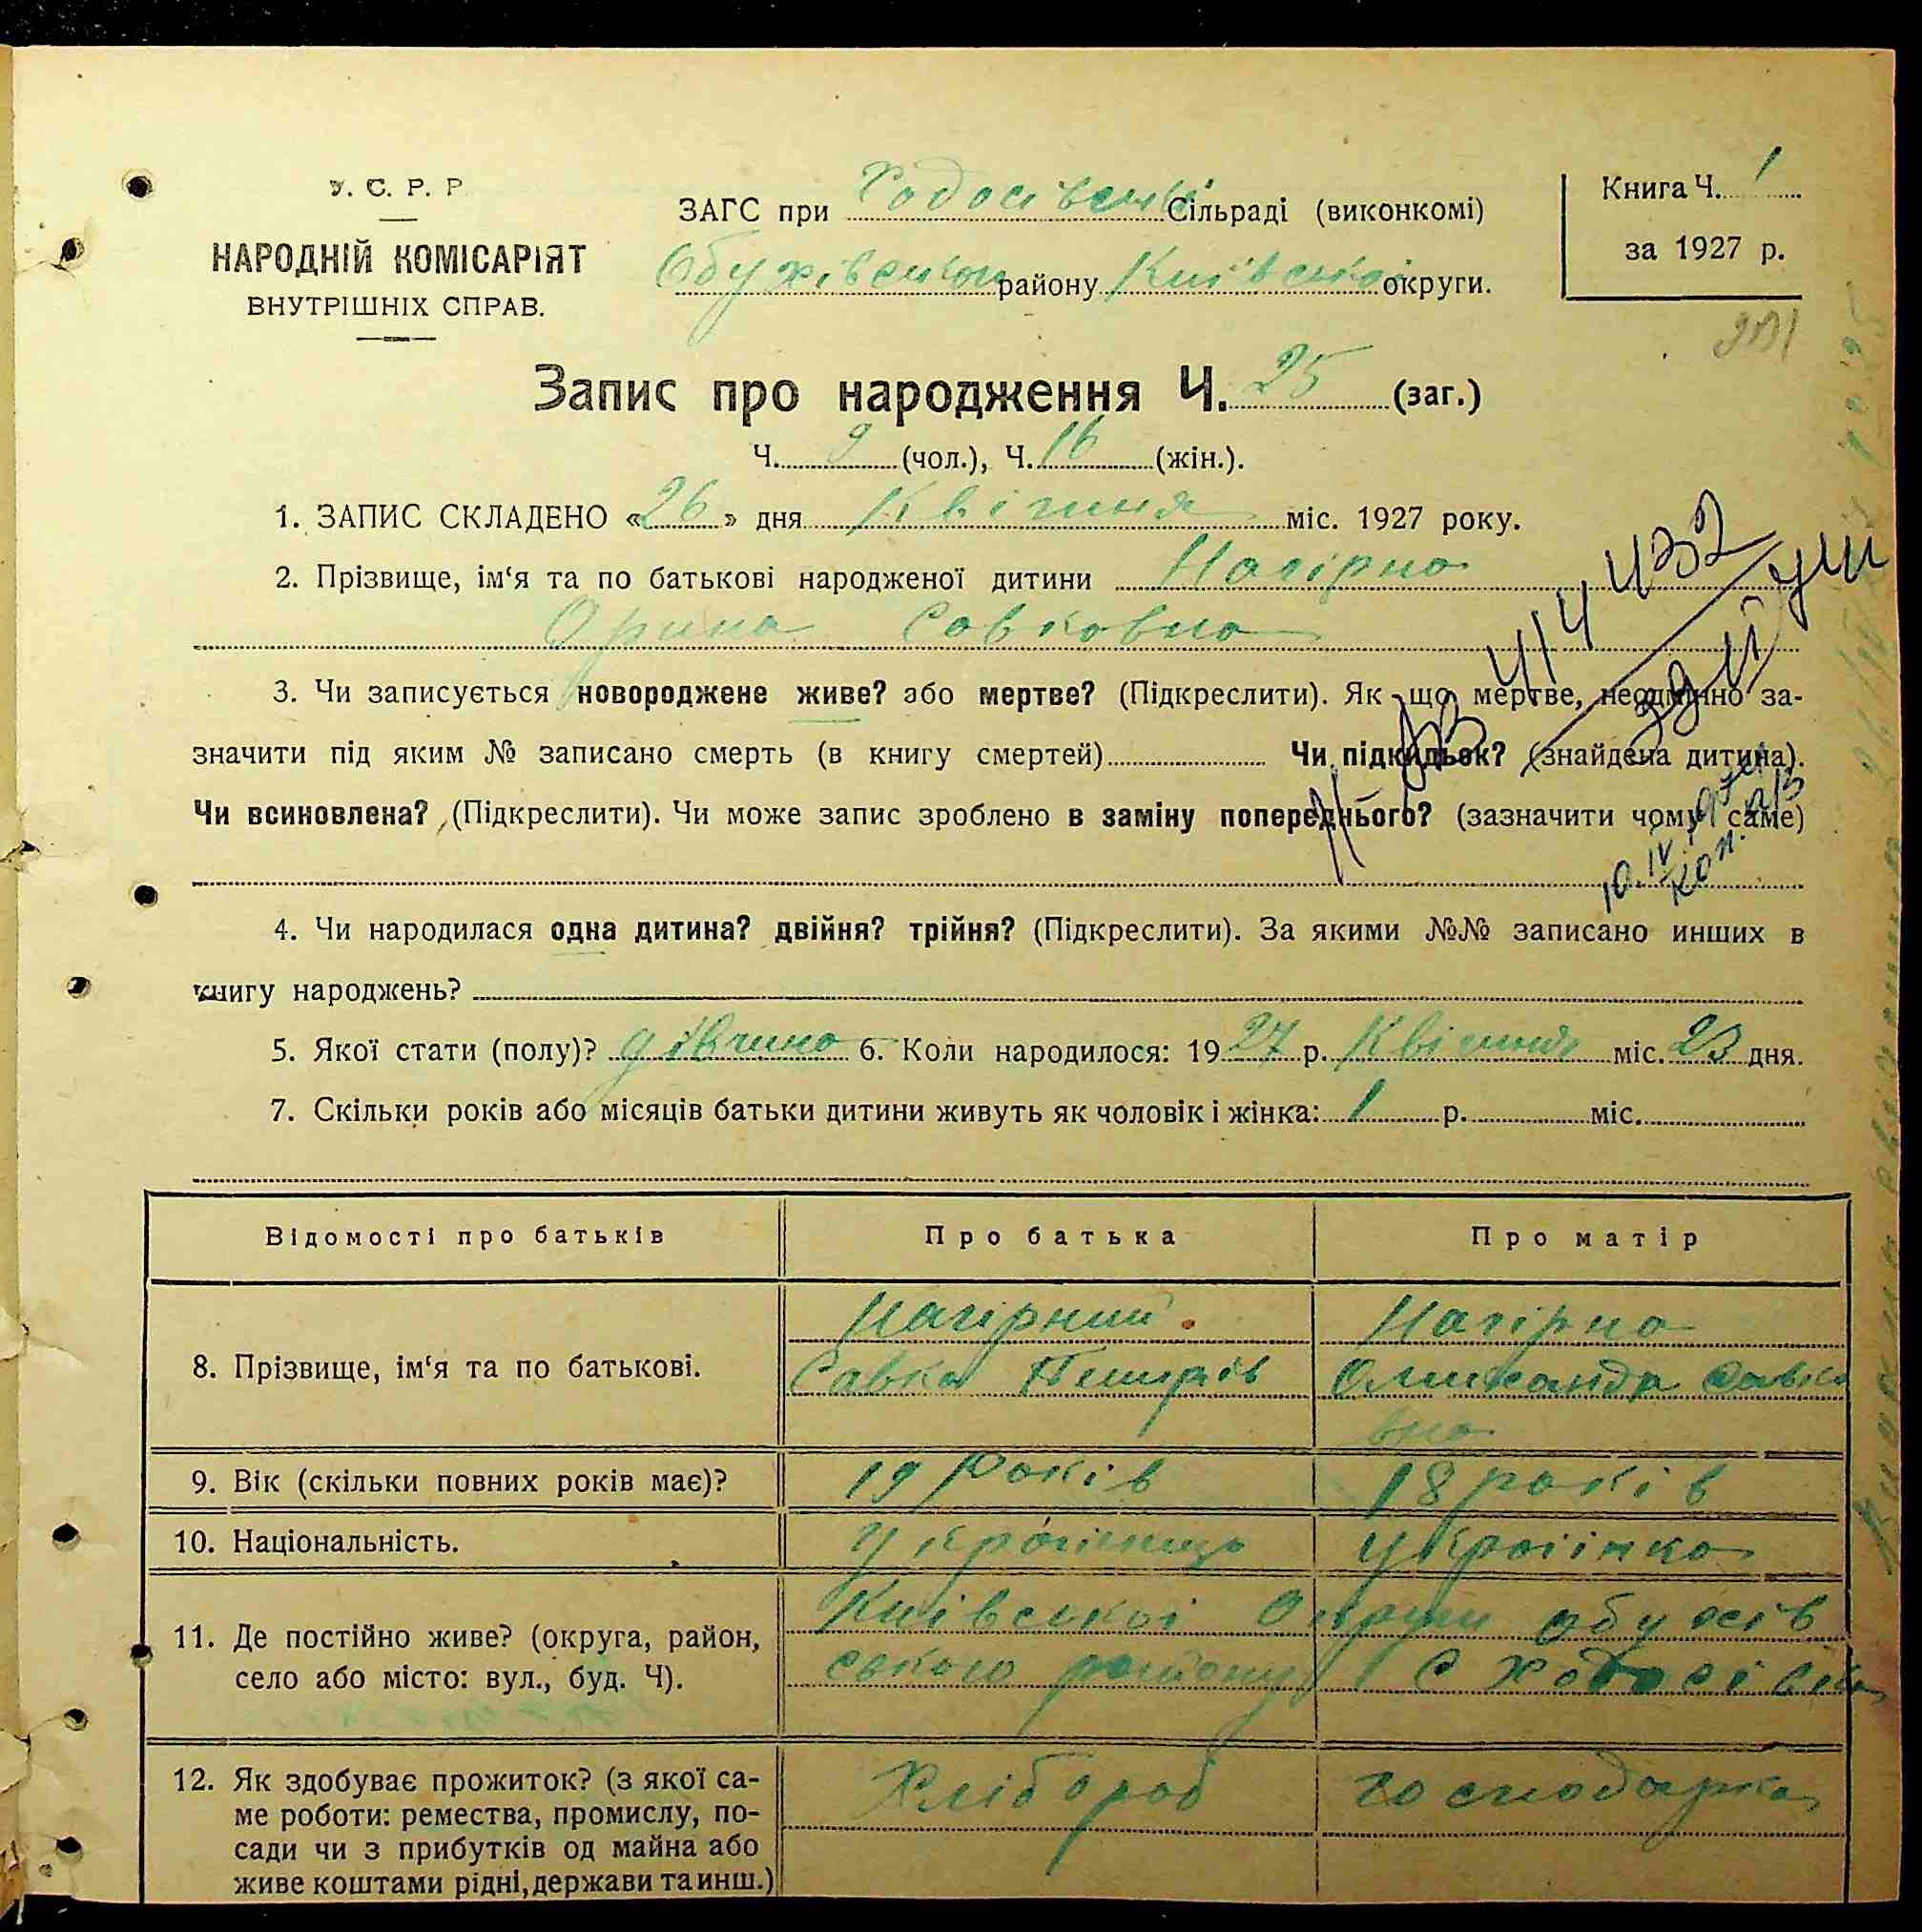 У. С. Р. Р.
НАРОДНІЙ КОМІСАРІЯТ
ВНУТРІШНІХ СПРАВ.
ЗАГС при Ходосівський Сільраді (виконкомі)
Обухівського району Київської округи.
Книга Ч. 1
за 1927 р.
Запис про народження Ч. 25 (заг.)
Ч. 9 (чол.), Ч. 16 (жін.).
1. ЗАПИС СКЛАДЕНО «26» дня Квітня міс. 1927 року.
2. Прізвище, ім‘я та по батькові народженої дитини Нагірна
Орина Совковна
3. Чи записується новороджене живе? або мертве? (Підкреслити). Як що мертве, неодмінно за-
значити під яким № записано смерть (в книгу смертей) Чи підкидьок? (знайдена дитина).
Чи всиновлена? (Підкреслити). Чи може запис зроблено в заміну попереднього? (зазначити чому саме)
4. Чи народилася одна дитина? двійня? трійня? (Підкреслити). За якими №№ записано инших в
книгу народжень?
5. Якої стати (полу)? дівчина 6. Коли народилося: 1927 р. Квітня міс. 23 дня.
7. Скільки років або місяців батьки дитини живуть як чоловік і жінка: 1 р. міс.
Відомості про батьків Про батька Про матір
8. Прізвище, ім‘я та по батькові.
Нагірний
Савка
Нагірна
Олександра Савко
вна
9. Вік (скільки повних років має)? 19 Років 18 років
10. Національність. Українець Українка
11. Де постійно живе? (округа, район,
село або місто: вул., буд. Ч).
Київської Округи Обухів
ського району С Ходосівка
12. Як здобуває прожиток? (з якої са-
ме роботи: ремества, промислу, по-
сади чи з прибутків од майна або
живе коштами рідні, держави та инш.)
Хлібороб господарка